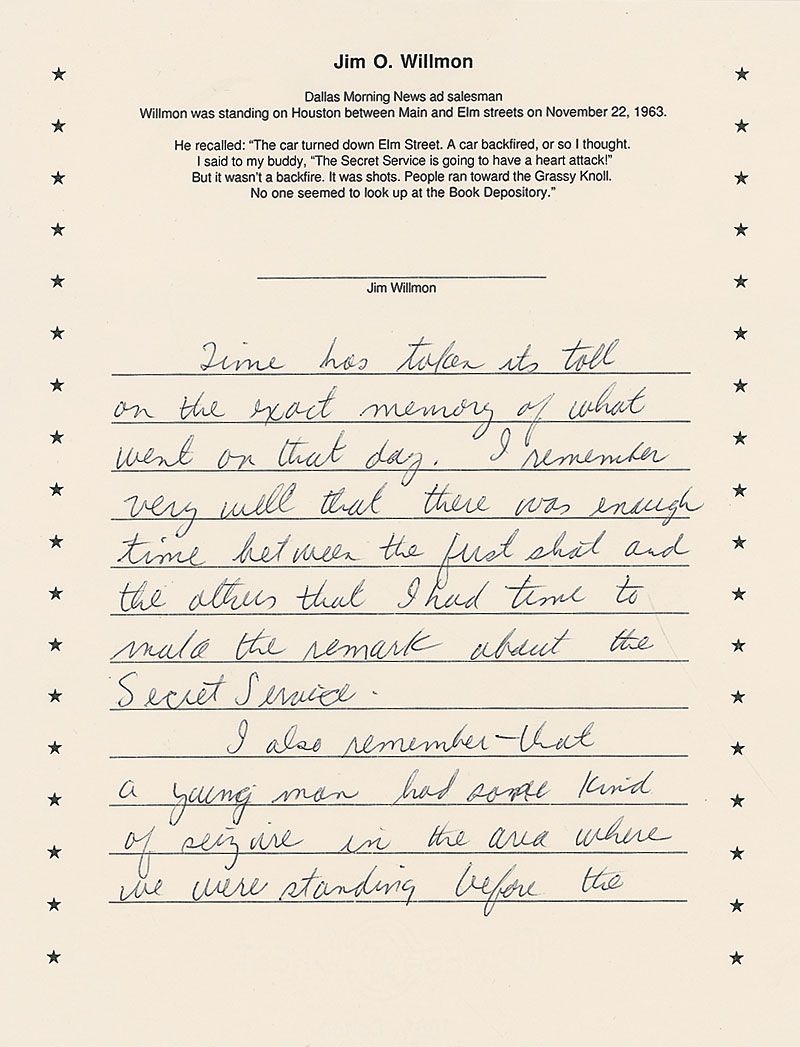 Jim O. Willmon
Dallas Morning News ad salesman
Willmon was standing on Houston between Main and Elm streets on November 22, 1963.
He recalled: “The car turned down Elm Street. A car backfired, or so I thought.
I said to my buddy, “The Secret Service is going to have a heart attack!”
But it wasn't a backfire. It was shots. People ran toward the Grassy Knoll.
No one seemed to look up at the Book Depository.”
Jim Willmon
Time has taken its toll
on the exact memory of what
went on that day. I remember
very well that there was enough
time between the first shot and
the others that I had time to
make the remark about the
Secret Service.
I also remember that
a young man had some kind
of seizure in the area where
we were standing before the